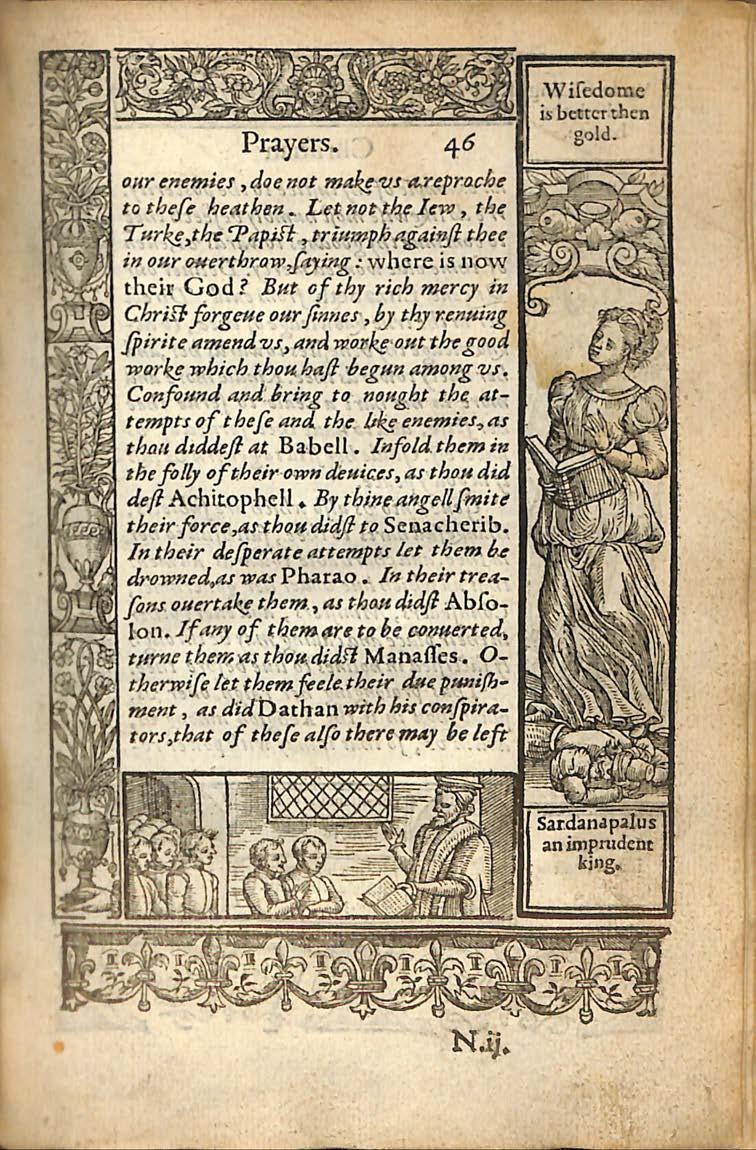 Prayers. 46
our enemies, doe not make vs a reproche
to theſe heathen. Let not the Iew, the
Turke, the Papiſt, triumph againſt thee
in our ouerthrow, ſaying: where is now
their God? But of thy rich mercy in
Chriſt forgeue our ſinnes, by thy renuing
ſpirite amend vs, and worke out the good
worke which thou haſt begun among vs.
Confound and bring to nought the at-
tempts of theſe and the like enemies, as
thou diddeſt at Babell. Infold them in
the folly of their own deuices, as thou did
deſt Achitophell. By thine angell ſmite
their force, as thou didſt to Senacherib.
In their deſperate attempts let them be
drowned, as was Pharao. In their trea-
ſons ouertake them, as thou didſt Abſo-
lon. If any of them are to be conuerted,
turne them as thou didſt Manaſſes. O-
therwiſe let them feele their due puniſh-
ment, as did Dathan with his conſpira-
tors, that of theſe alſo there may be left
Wiſedome
is better then
gold.
Sardanapalus
an imprudent
king.
N.ij.